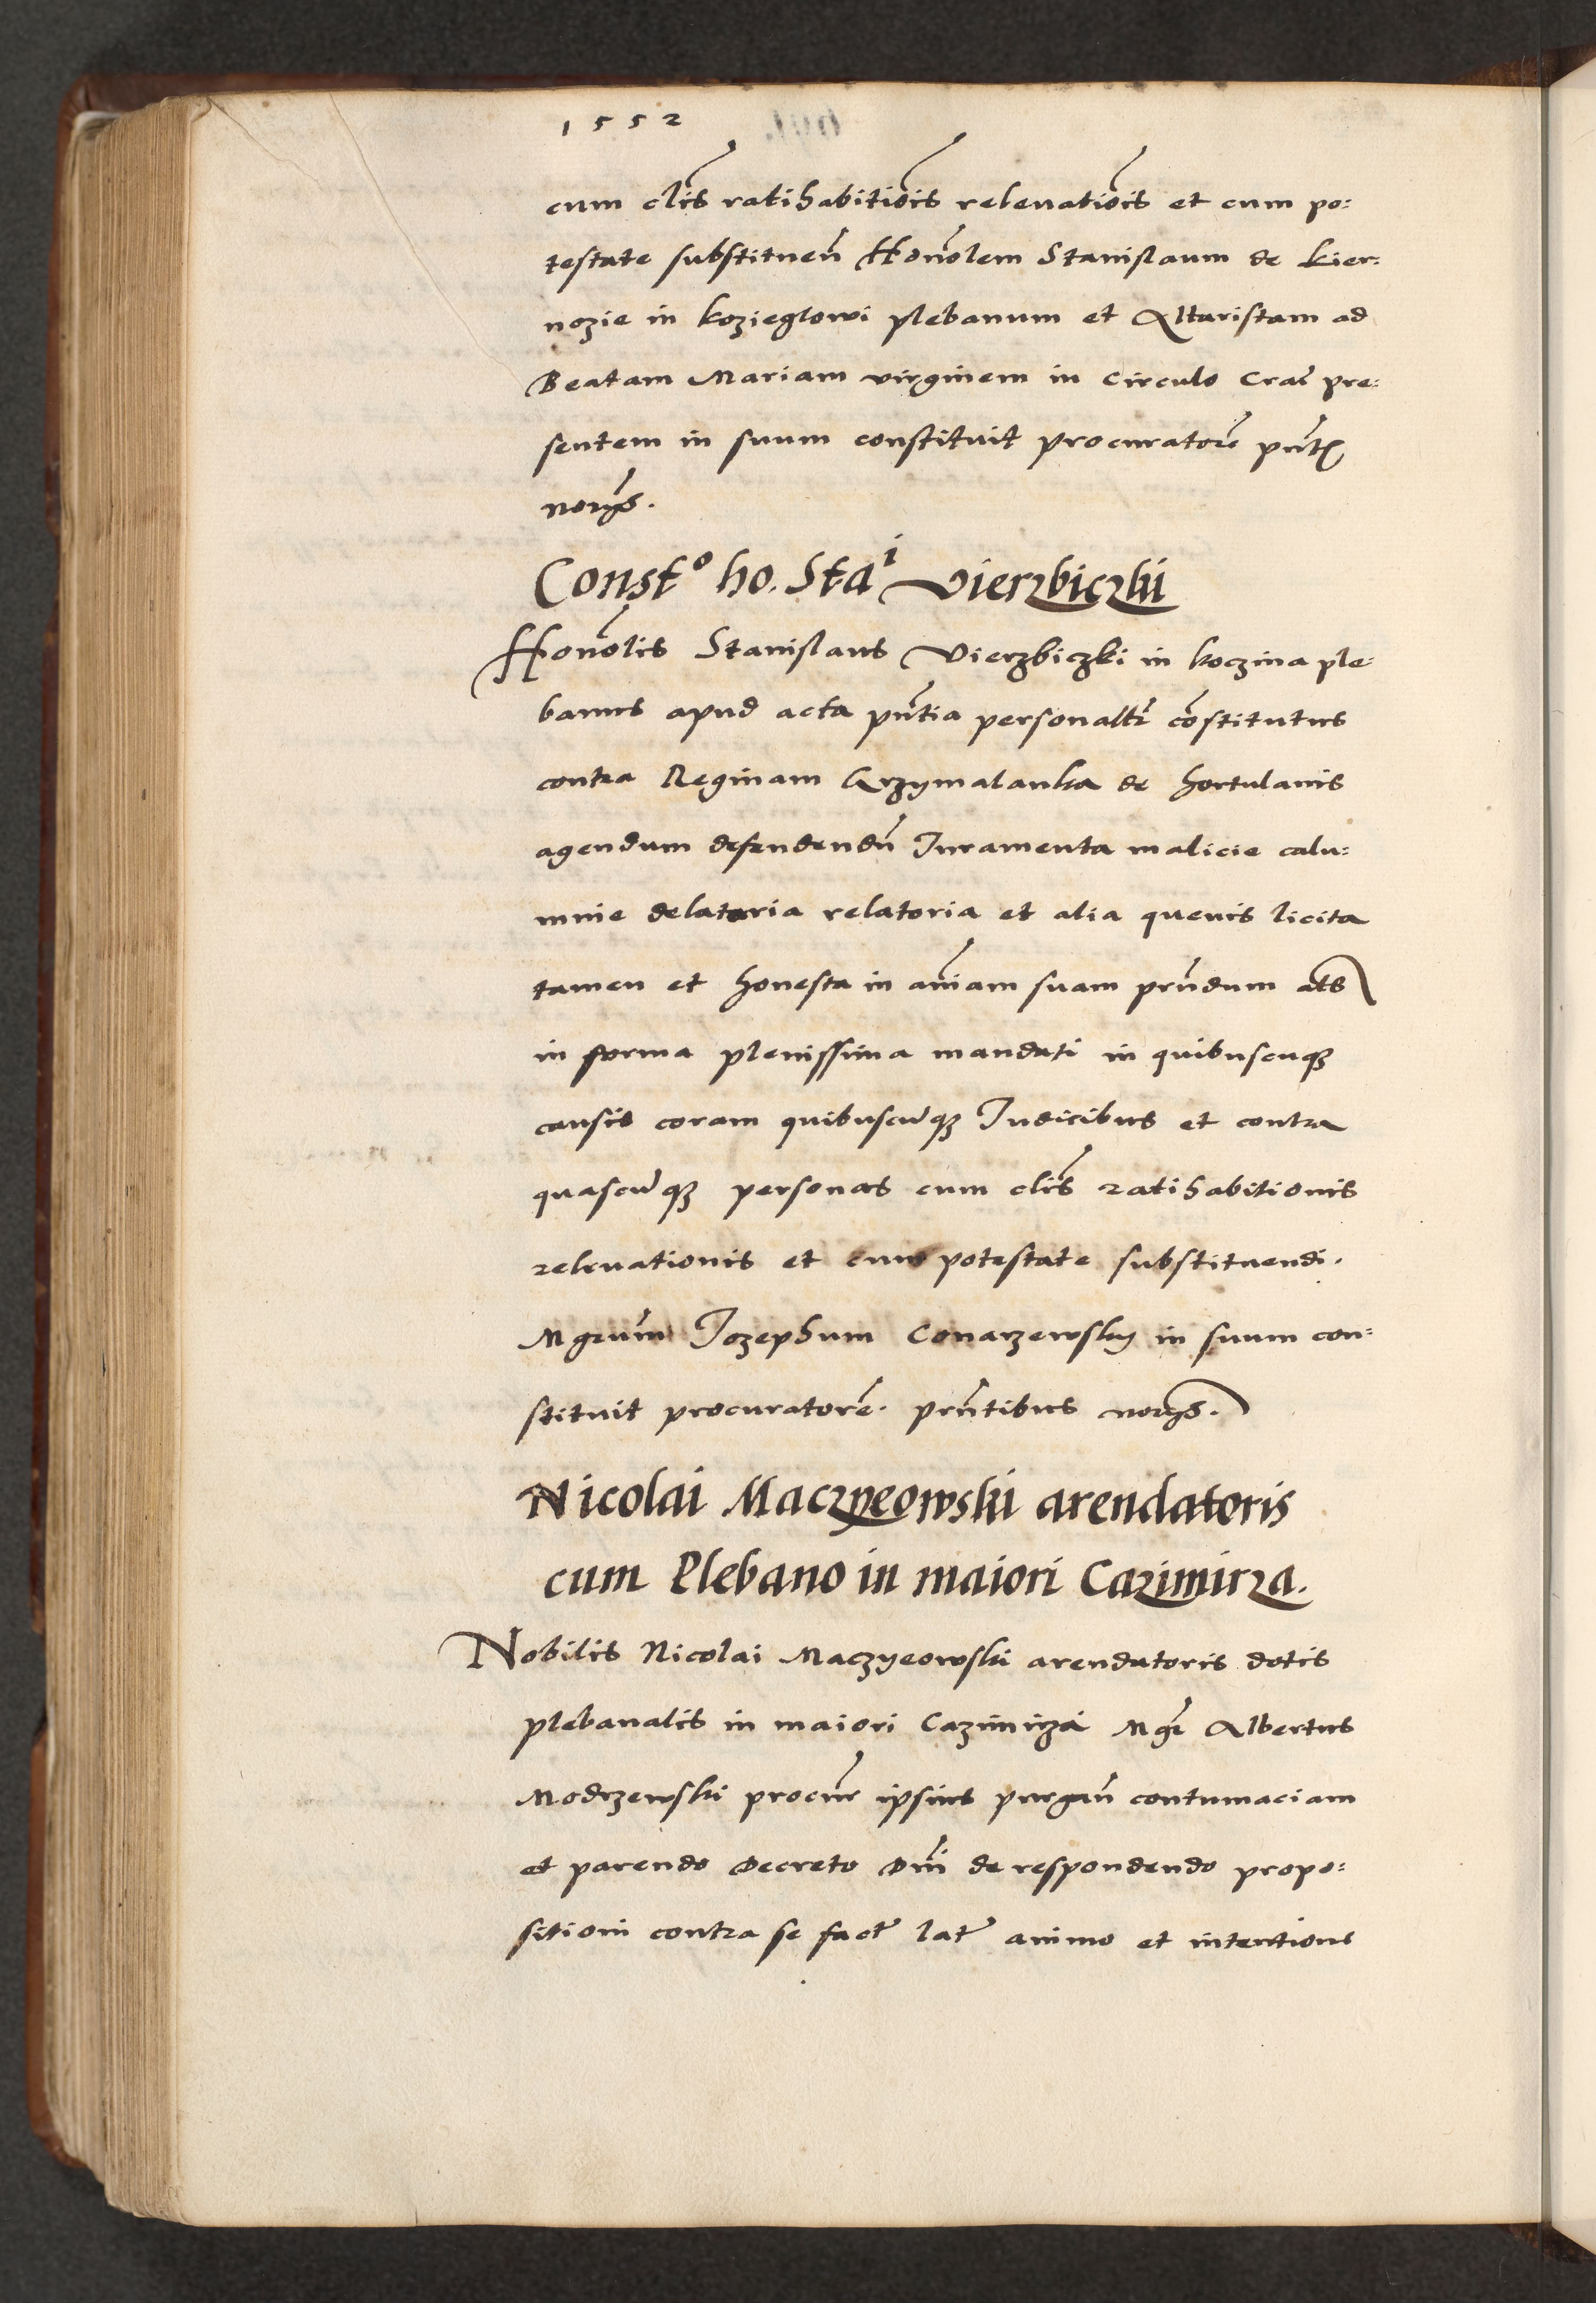 1552
cum clis ratihabitiois relevatiois et cum po:
testate substituen Honolem Stanislaum de kier:
nozie in kozieglowi plebanum et Altaristam ad
Beatam Mariam virginem in Circulo Crac pre:
sentem in suum constituit procuratore pnt
norys.
Const° ho. Stai Vierzbiczkii
Honolis Stanislaus Vierzbiczki in koczina ple:
banus apud acta pntia personalr constitutus
contra Reginam Grzymalanka de hortulanis
agendum defendendu Iuramenta malicie calu:
mnie delatoria relatoria et alia quevis licita
tamen et honesta in aiam suam prndum als
in forma plenissima mandati in quibuscuqz
causis coram quibuscuqz Iudicibus et contra
quascuqz personas cum clis ratihabitionis
relevationis et cum potestate substituendi.
Mgrum Iozephum Conarzewsky in suum con:
stituit procuratore. prntibus norys.
Nicolai Maczyeowski arendatoris
cum Plebano in maiori Cazimirza.
Nobilis Nicolai Maczyeowski arendatoris dotis
plebanalis in maiori Cazimirza Mgr Albertus
Modrzewski procur ipsius purgan contumaciam
et parendo Decreto Dni de respondendo propo:
sitioni contra se fact lat animo et intentione